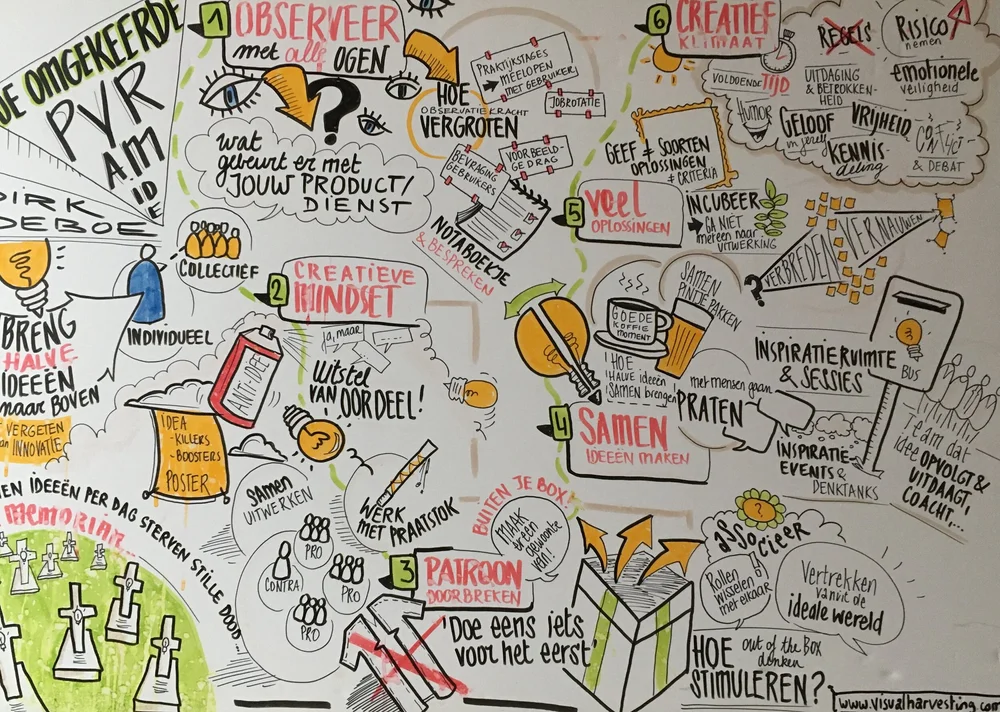 DE OMGEKEERDE
PYR
AM
ID
E
DIRK
DEBOE
BRENG
HALVE
IDEEËN
naar BOVEN
VERGETEN
INNOVATIE
COLLECTIEF
INDIVIDUEEL
IDEEËN PER DAG STERVEN STILLE DOOD...
MEMORIAM...
1
OBSERVEER
met alle OGEN
?
wat
gebeurt er met
JOUW PRODUCT/
DIENST
HOE
OBSERVATIEKRACHT
VERGROTEN
PRAKTIJKSTAGES
MEELOPEN
MET GEBRUIKER
JOBROTATIE
BEVRAGING
GEBRUIKERS
VOORBEELD-
GEDRAG
NOTABOEKJE
& BESPREKEN
2
CREATIEVE
MINDSET
ja, maar
Uitstel
VAN OORDEEL!
ANTI-IDEE
IDEA
-KILLERS
-BOOSTERS
POSTER
SAMEN
UITWERKEN
PRO
CONTRA
PRO
PRO
WERK
MET PRAATSTOK
3
PATROON
DOORBREKEN
BUITEN JE BOX!
MAAK
er een
gewoonte
van!
'Doe eens iets
voor het eerst'
associeer
Rollen
wisselen
met elkaar
Vertrekken
vanuit de
ideale wereld
HOE out of the Box
denken
STIMULEREN?
4
SAMEN
IDEEËN MAKEN
GOEDE
KOFFIE
MOMENT
SAMEN
PINTJE PAKKEN
'HOE
HALVE ideeën
SAMEN brengen
met mensen gaan
PRATEN
INSPIRATIERUIMTE
& SESSIES
INSPIRATIE-
EVENTS &
DENKTANKS
BUS
Team dat
idee OPVOLGT &
UITDAAGT,
COACHT,...
5
veel
OPLOSSINGEN
GEEF ≠ SOORTEN
OPLOSSINGEN
≠ CRITERIA
INCUBEER
GA NIET
meteen naar
UITWERKING
?
VERBREDEN
VERNAUWEN
6
CREATIEF
KLIMAAT
REGELS
RISICO
nemen
VOLDOENDE TIJD
UITDAGING
& BETROKKEN-
HEID
emotionele
veiligheid
HUMOR
GELOOF
in jezelf
VRIJHEID
KENNIS
deling
CONFLICT
& DEBAT
www.visualharvesting.com